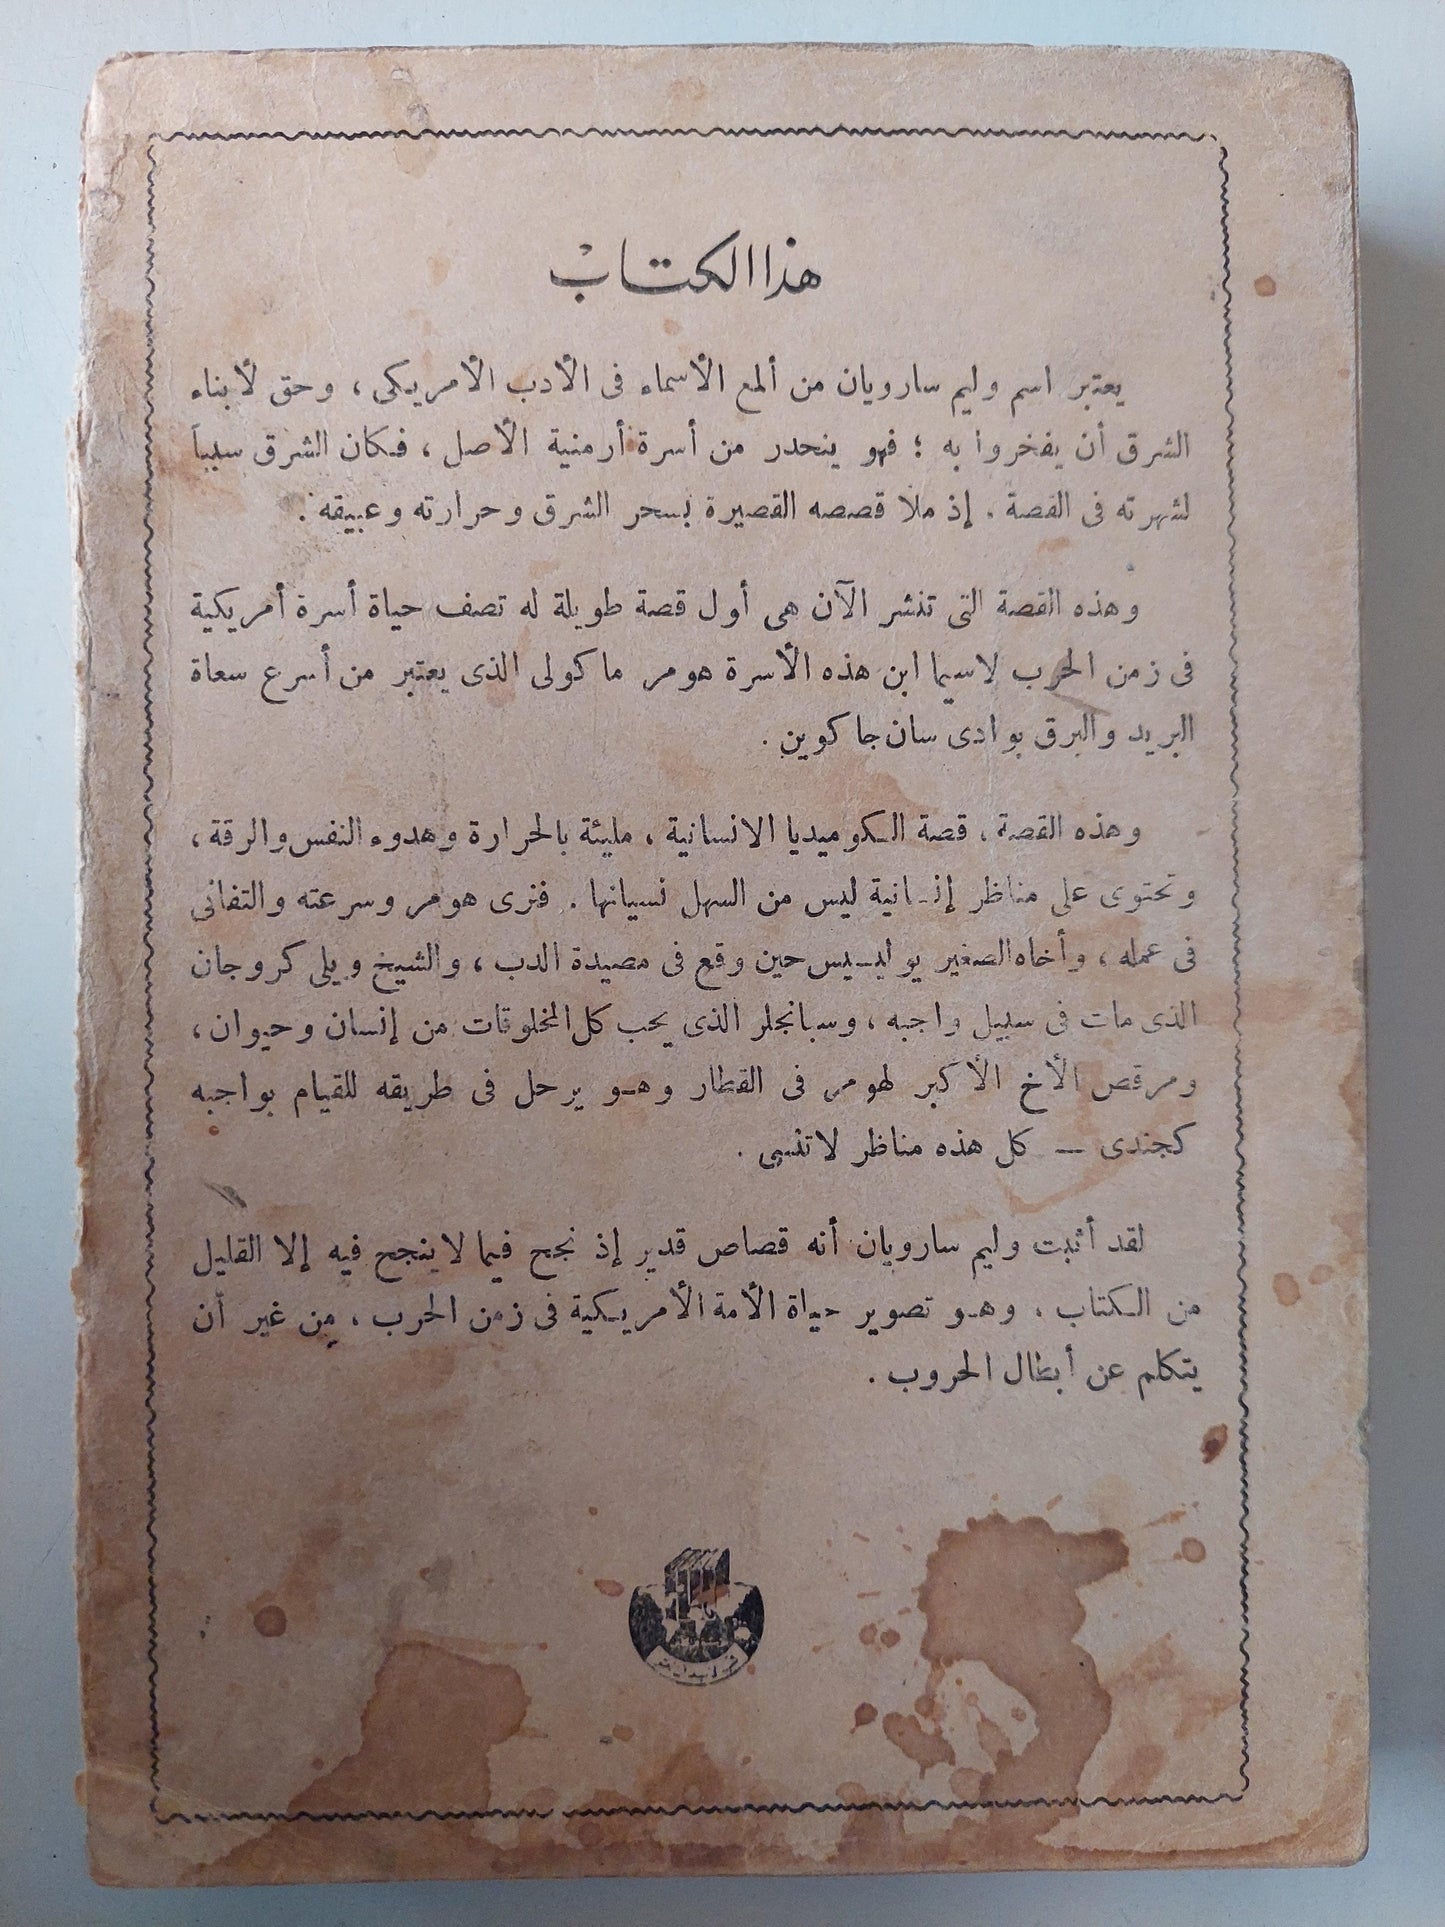 هذا الكتاب
يعتبر اسم وليم سارويان من ألمع الأسماء فى الأدب الأمريكى ، وحق لأبناء
الشرق أن يفخروا به ؛ فهو ينحدر من أسرة أرمنية الأصل ، فكان الشرق سبباً
لشهرته فى القصة . إذ ملأ قصصه القصيرة بسحر الشرق وحرارته وعبيقه .
وهذه القصة التى تنشر الآن هى أول قصة طويلة له تصف حياة أسرة أمريكية
فى زمن الحرب لاسيما ابن هذه الأسرة هومر ماكولى الذى يعتبر من أسرع سعاة
البريد والبرق بوادى سان جاكوين .
وهذه القصة ، قصة الكوميديا الانسانية ، مليئة بالحرارة وهدوء النفس والرقة ،
وتحتوى على مناظر إنسانية ليس من السهل نسيانها . فنرى هومر وسرعته والتفانى
فى عمله ، وأخاه الصغير يوليسيس حين وقع فى مصيدة الدب ، والشيخ ويلى كروجان
الذى مات فى سبيل واجبه ، وسبانجلر الذى يحب كل المخلوقات من إنسان وحيوان ،
ومرقص الأخ الأكبر لهومر فى القطار وهو يرحل فى طريقه للقيام بواجبه
كجندى — كل هذه مناظر لاتنسى .
لقد أثبت وليم سارويان أنه قصاص قدير إذ نجح فيما لاينجح فيه إلا القليل
من الكتاب . وهو تصوير حياة الأمة الأمريكية فى زمن الحرب ، من غير أن
يتكلم عن أبطال الحروب .